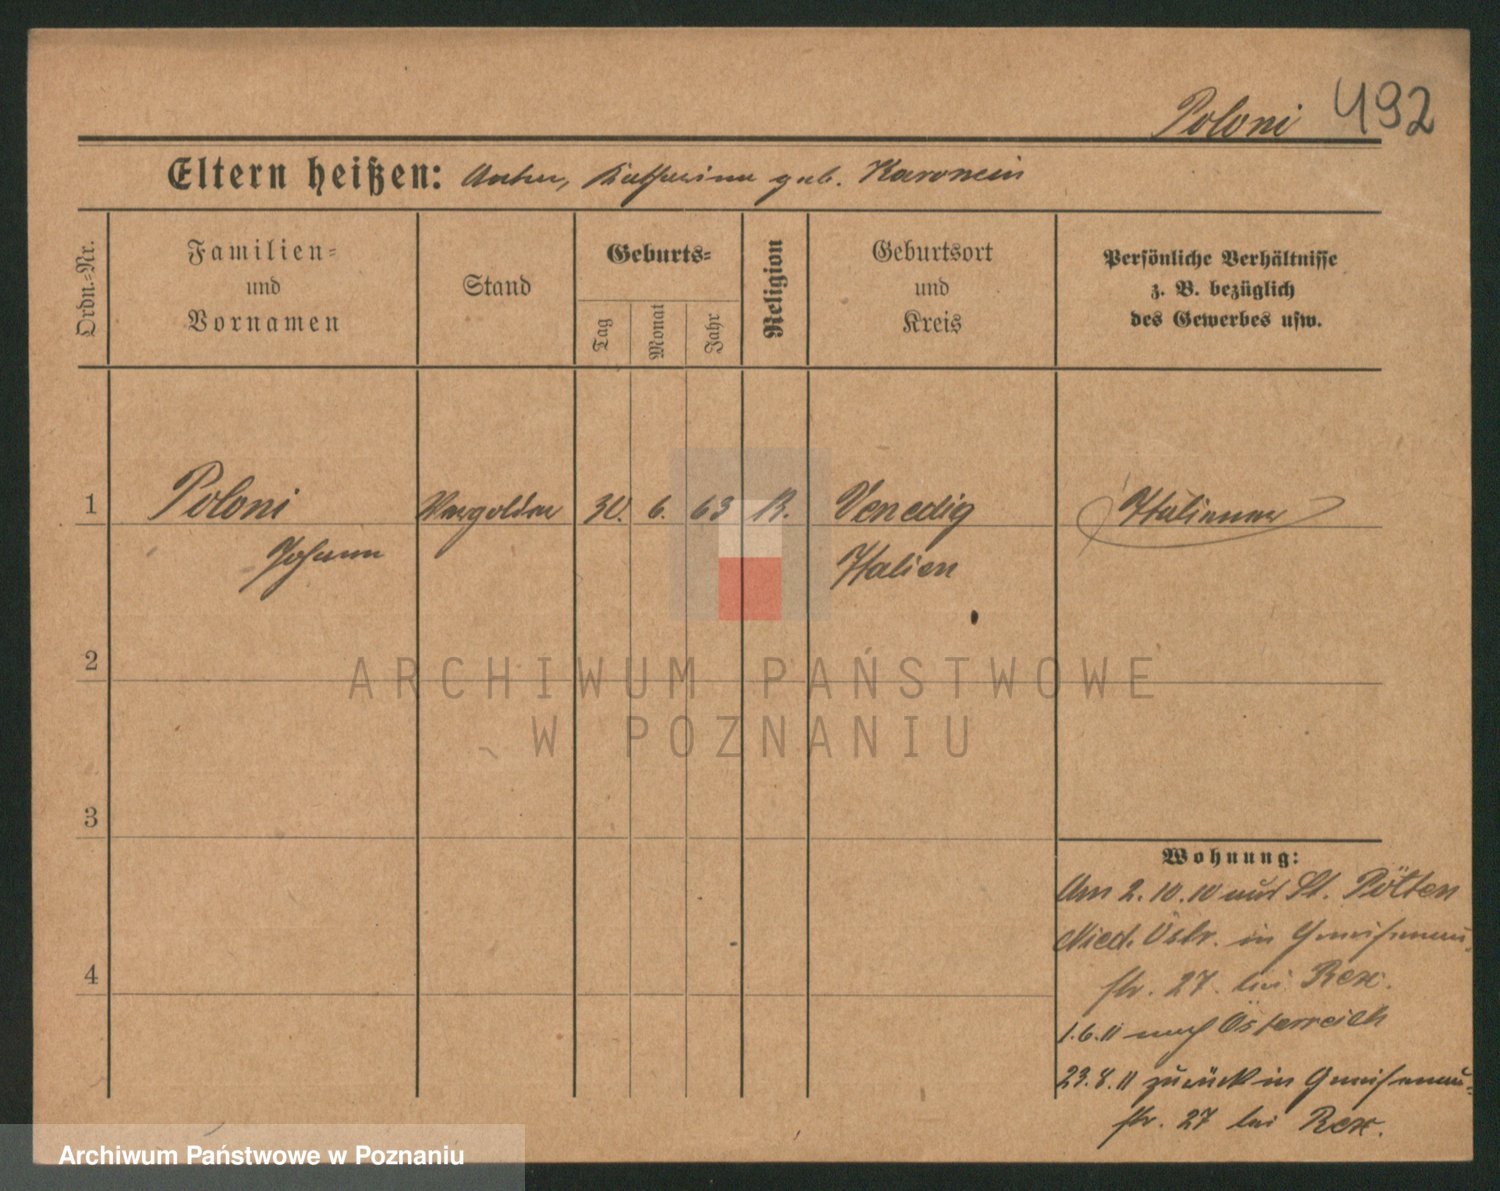 Poloni 492
Eltern heißen: Anton, Katharina geb. Karonein
Ordn.-Nr.
Familien-
und
Vornamen
Stand
Geburts-
Tag
Monat
Jahr
Religion
Geburtsort
und
Kreis
Persönliche Verhältnisse
z. B. bezüglich
des Gewerbes usw.
1 Poloni Vergolder 30. 6. 63 R. Venedig Italiener
Johann Italien
2
3
4
Wohnung:
Am 2.10.10 aus St. Pölten
Nied. Östr. in Gneisenau-
str. 27. bei Rex.
1.6.11 nach Österreich
23.8.11 zurück in Gneisenau-
str. 27 bei Rex.
ARCHIWUM PAŃSTWOWE
W POZNANIU
Archiwum Państwowe w Poznaniu